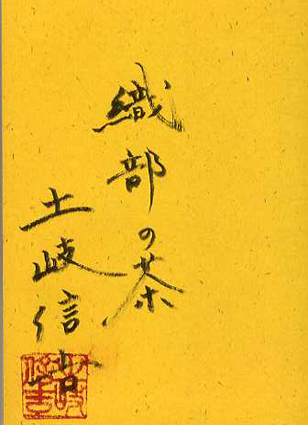 織部の茶
土岐信吉